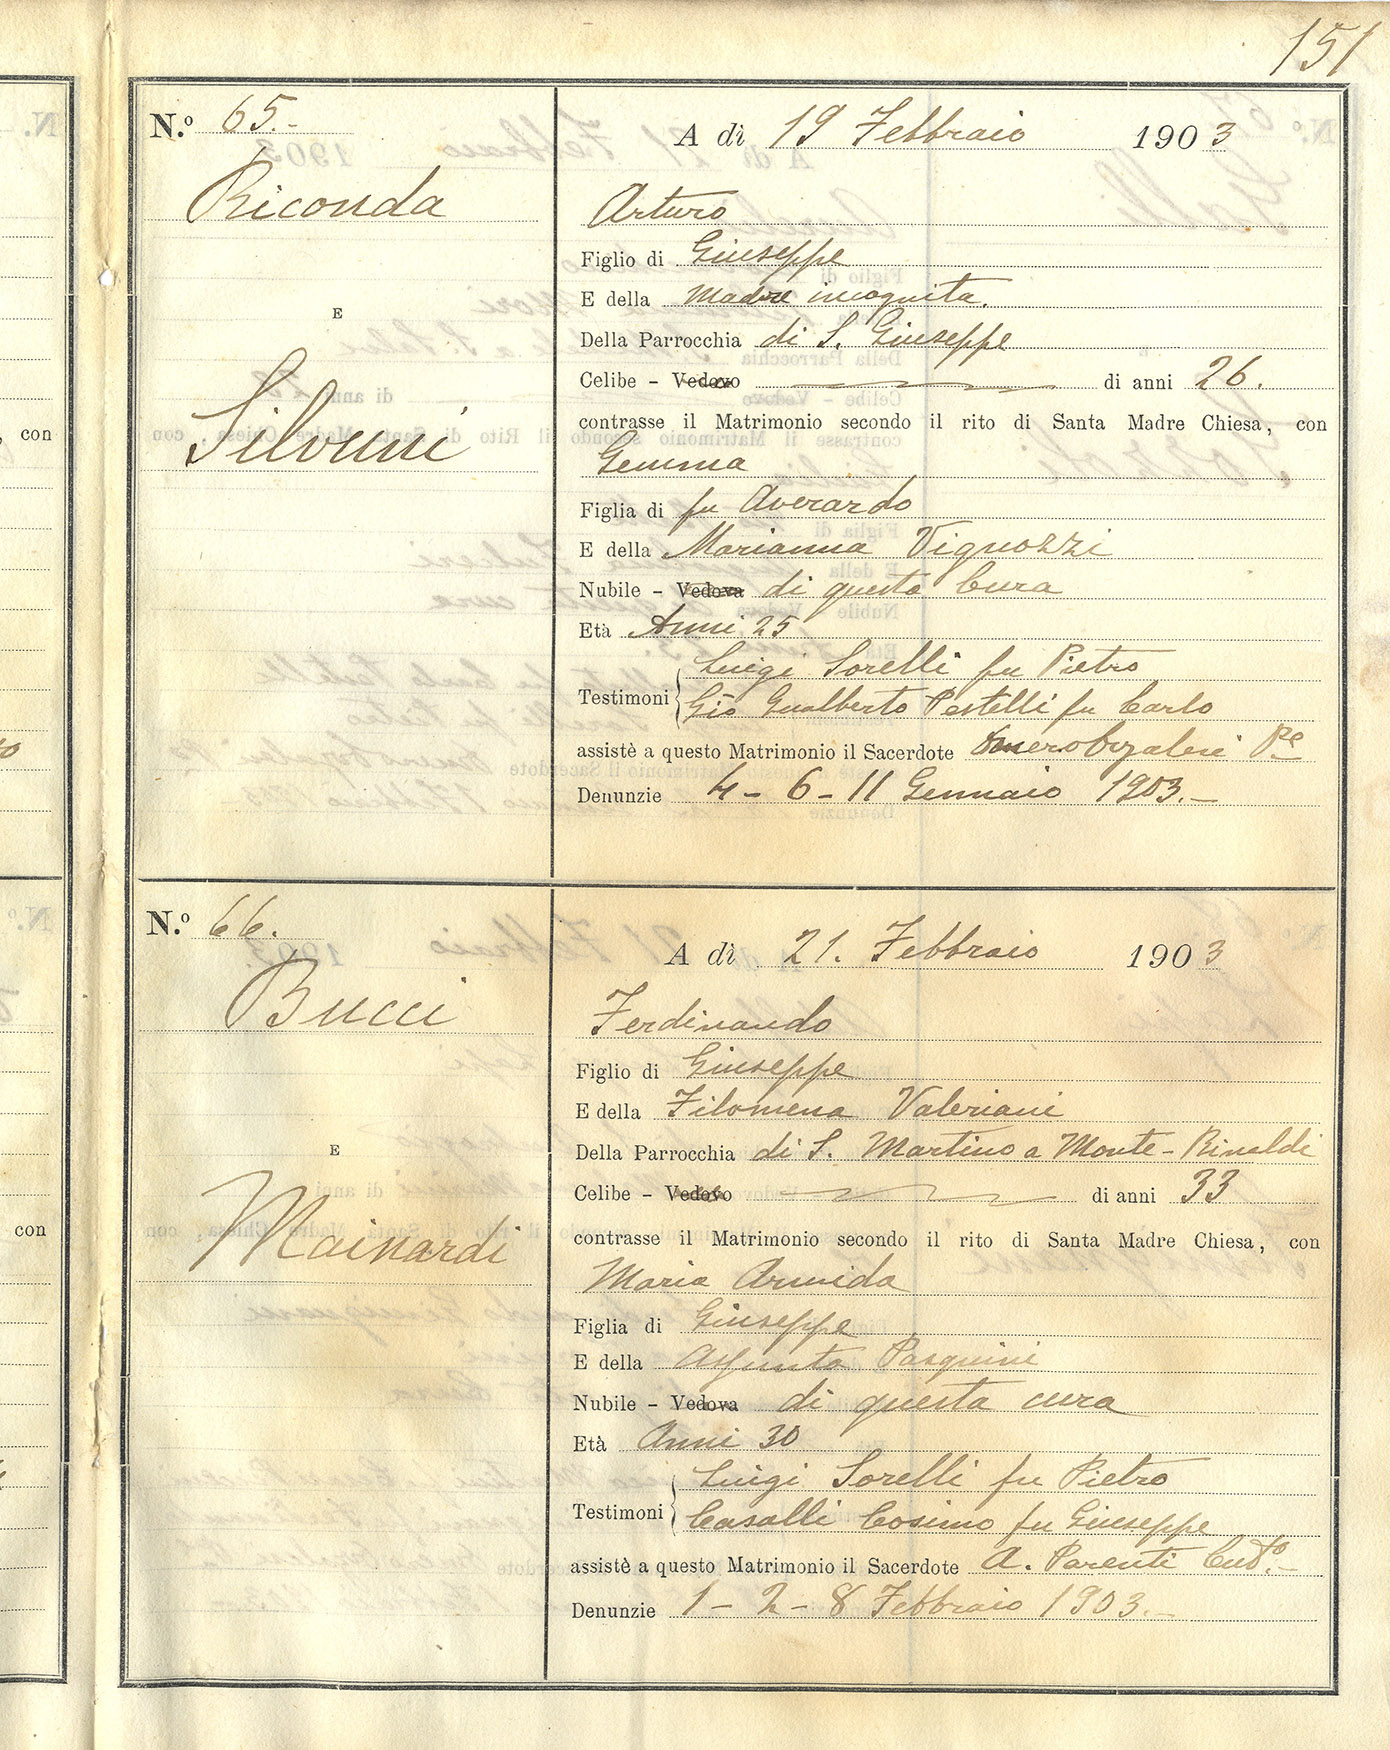 151
N.º 65.-
Riconda
E
Silvuni
A dì 19 Febbraio 1903
Arturo
Figlio di Giuseppe
E della Madre incognita.
Della Parrocchia di S. Giuseppe
Celibe - Vedovo di anni 26.
contrasse il Matrimonio secondo il rito di Santa Madre Chiesa, con
Gemma
Figlia di fu Averardo
E della Marianna Vignozzi
Nubile - Vedova di questa Cura
Età Anni 25
Testimoni Luigi Sorelli fu Pietro
Gio Gualberto Pestelli fu Carlo
assistè a questo Matrimonio il Sacerdote
Denunzie 4 - 6 - 11 Gennaio 1903.-
N.º 66.
Bucci
E
Mainardi
A dì 21. Febbraio 1903
Ferdinando
Figlio di Giuseppe
E della Filomena Valeriani
Della Parrocchia di S. Martino a Monte-Rinaldi
Celibe - Vedovo di anni 33
contrasse il Matrimonio secondo il rito di Santa Madre Chiesa, con
Maria Armida
Figlia di Giuseppe
E della Assunta Pasquini
Nubile - Vedova di questa cura
Età Anni 30
Testimoni Luigi Sorelli fu Pietro
Casalli Cosimo fu Giuseppe
assistè a questo Matrimonio il Sacerdote A. Parenti
Denunzie 1 - 2 - 8 Febbraio 1903.-
, con
con